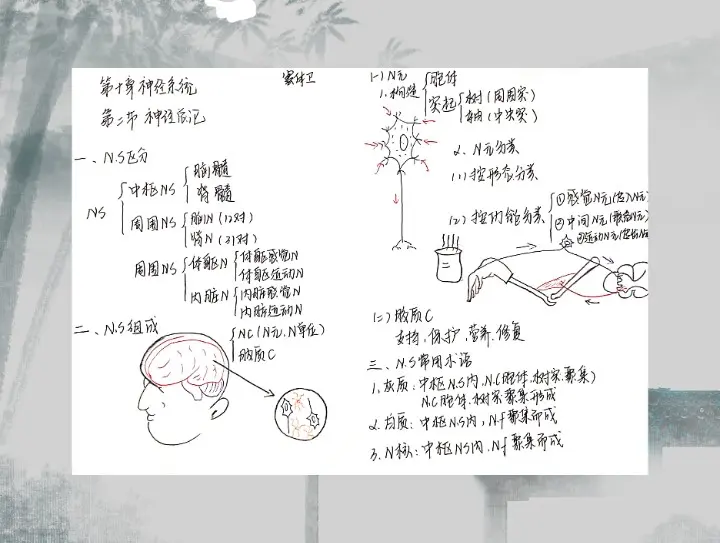 第十章 神经系统
第一节 神经总论
一、N.S区分
NS
中枢NS
脑髓
脊髓
周围NS
脑N(12对)
脊N(31对)
周围NS
体躯N
体躯感觉N
体躯运动N
内脏N
内脏感觉N
内脏运动N
二、N.S组成
NC(N元、N单位)
胶质C
(一) N元
1.构造
胞体
突起
树(周围突)
轴(中央突)
2、N元分类
(1) 按形态分类
(2) 按功能分类
①感觉N元
②中间N元
③运动N元
(二) 胶质C
支持、保护、营养、修复
三、N.S常用术语
1.灰质:中枢N.S内、N.C胞体、树突聚集
N.C胞体、树突聚集形成
2.白质:中枢NS内,N.f聚集而成
3.N核:中枢NS内、N.f聚集而成